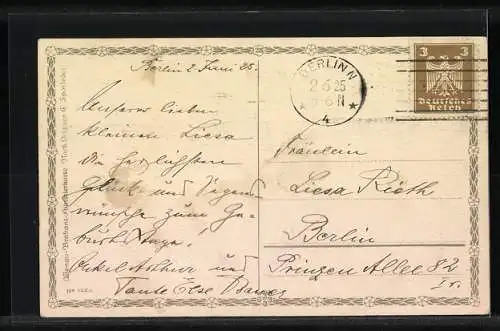 Berlin 2 Juni 25.
Unserer lieben
kleinen Liesa
die herzlichsten
Glück- und Segens-
wünsche zum Ge-
burtstage!
Onkel Arthur und
Tante Else
BERLIN N
2.6.25
4
3 3
Deutsches
Reich
Fräulein
Liesa Rieth
Berlin
Prinzen Allee 82
Ir.